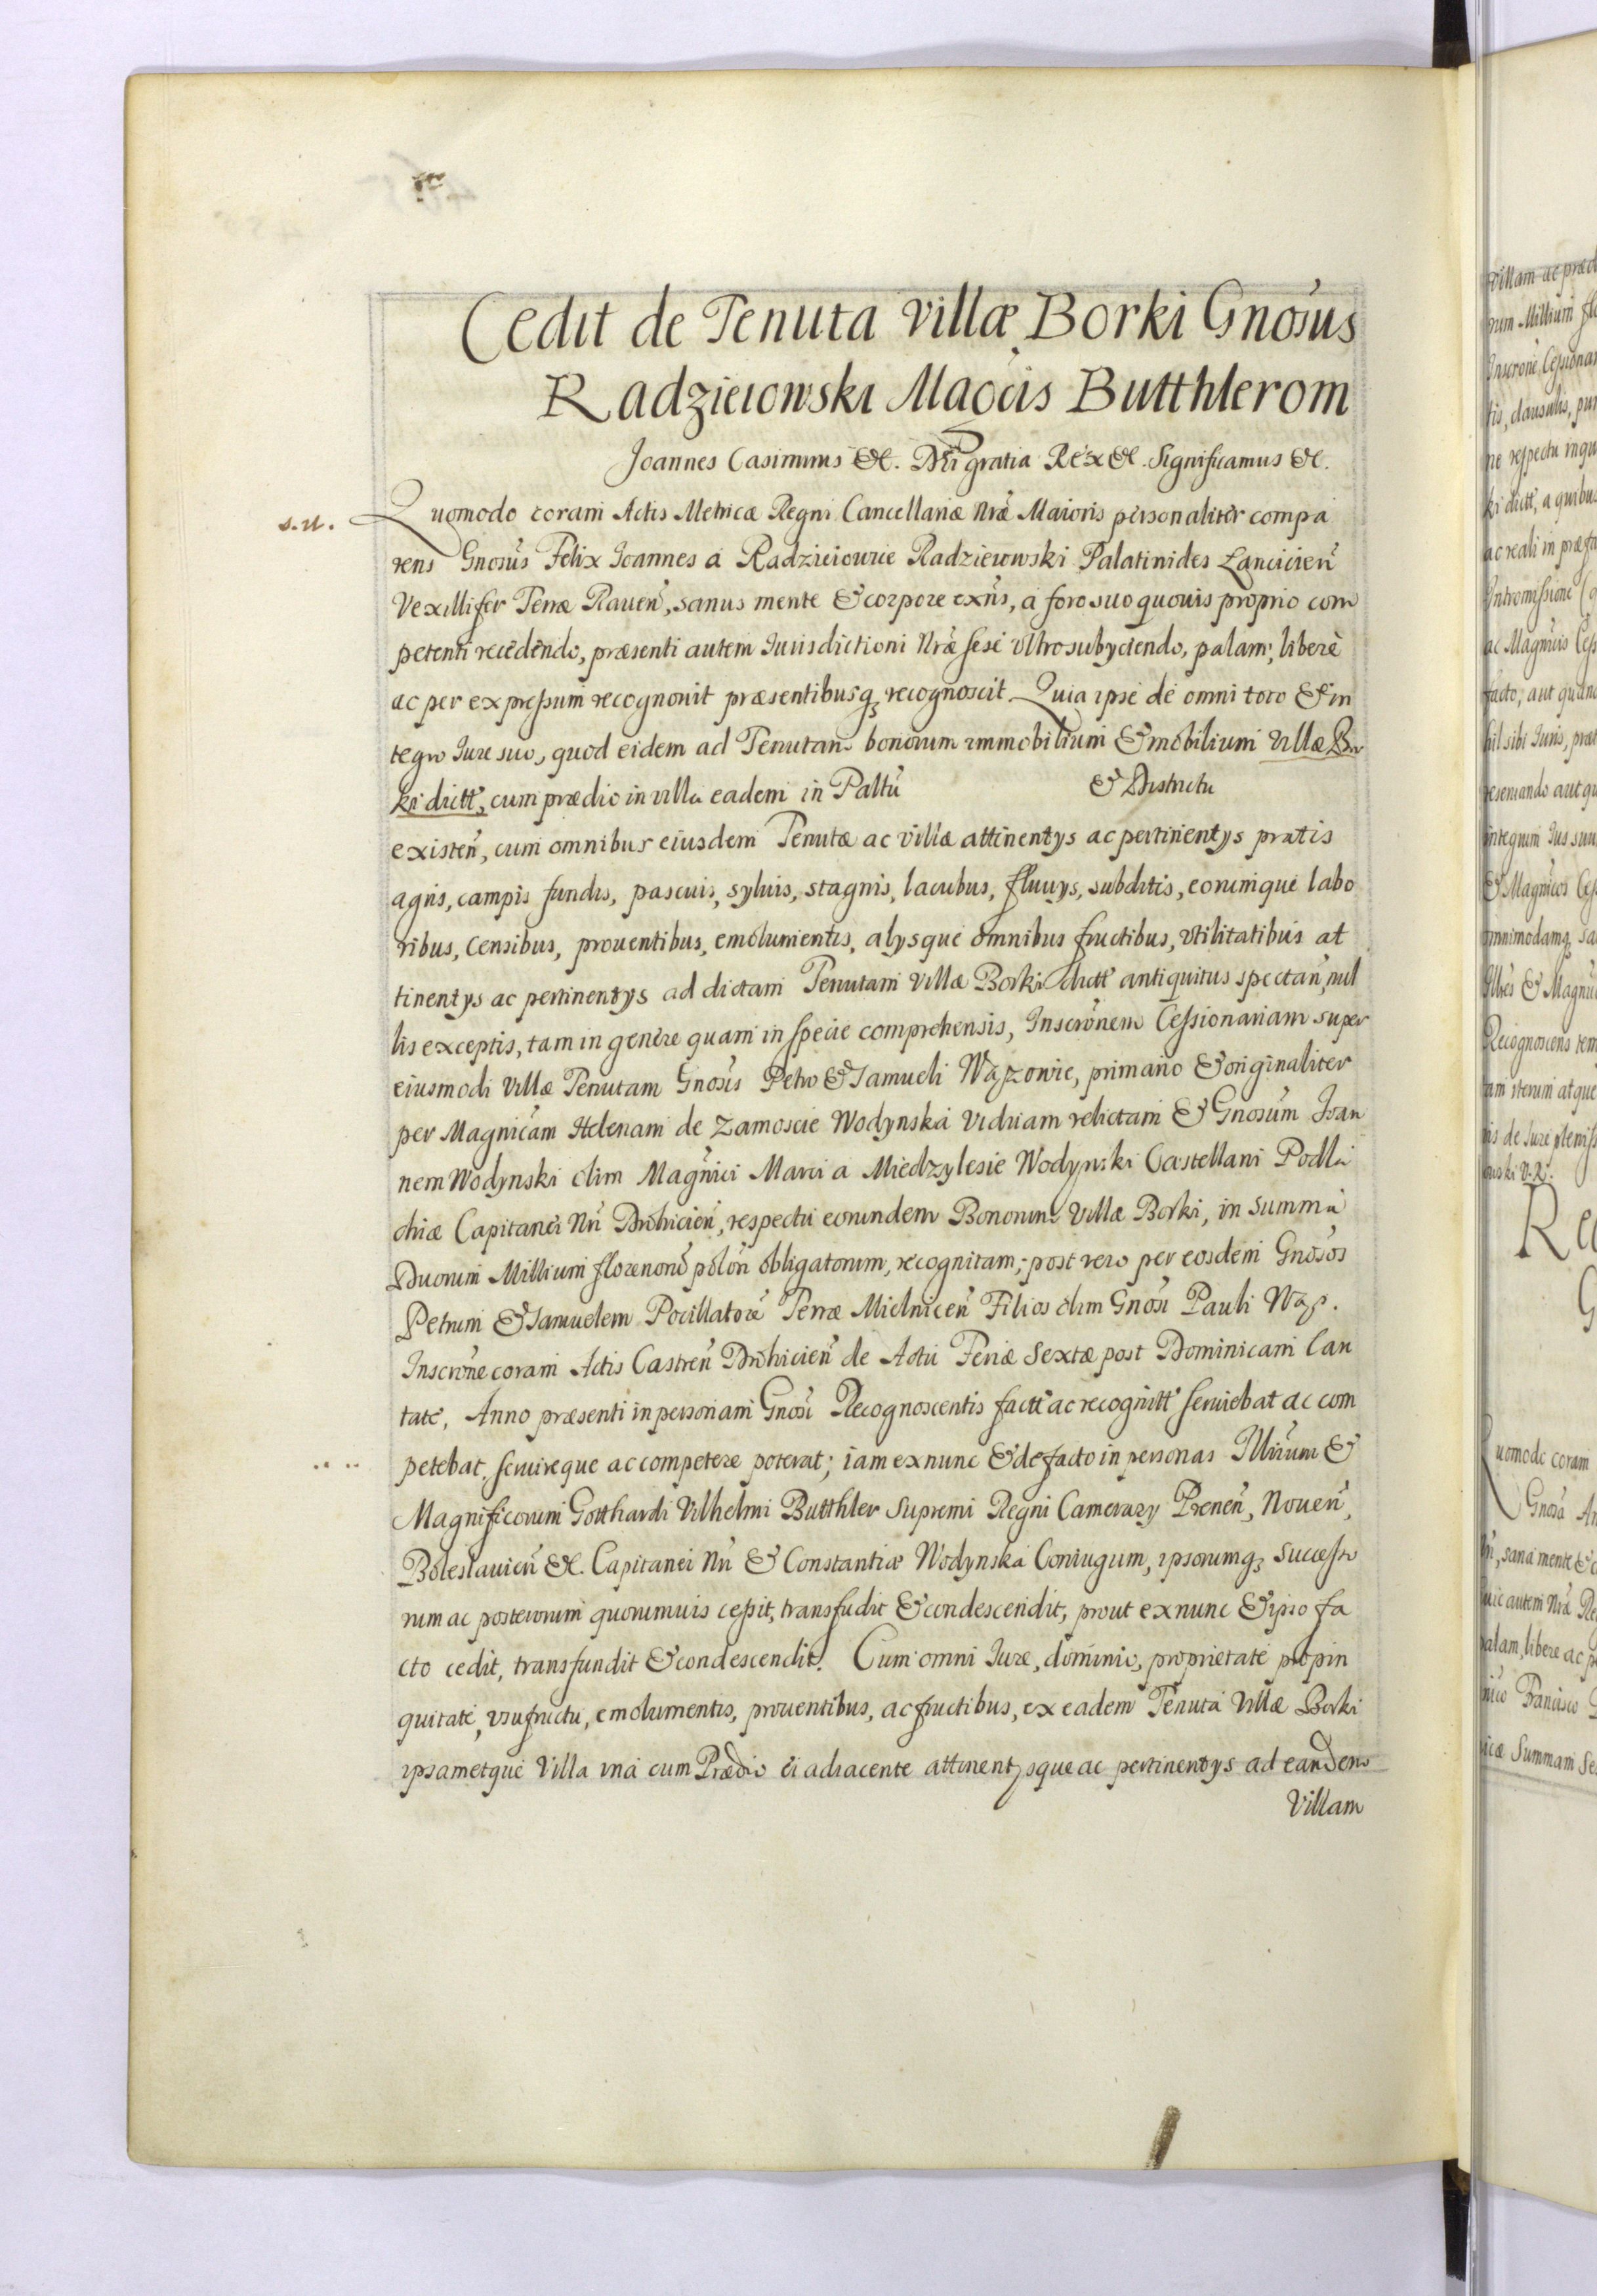 Cedit de Tenuta villæ Borki Gnosus
Radzieiowski Magcis Butthlerom
Joannes Casimirus &c. Dei gratia Rex &c. Significamus &c.
s.u.
Quomodo coram Actis Metricæ Regni Cancellariæ Nræ Maioris personaliter compa
rens Gnosus Felix Joannes a Radzieiowie Radzieiowski Palatinides Lancicień
Vexillifer Terræ Raueń, sanus mente & corpore exñs, a foro suo quouis proprio com
petenti recedendo, præsenti autem Iurisdictioni Nræ sese vltro subyciendo, palam, libere
ac per expressum recognouit præsentibusq3 recognoscit Quia ipse de omni toto & in
tegro Iure suo, quod eidem ad Tenutam bonorum immobilium & mobilium villæ Bor
ki dictt, cum prædio in villa eadem in Paltu & Districtu
existeñ, cum omnibus eiusdem Tenutæ ac villæ attinentys ac pertinentys pratis
agris, campis fundis, pascuis, syluis, stagnis, lacubus, fluuys, subditis, eorumque labo
ribus, censibus, prouentibus, emolumentis, alysque omnibus fructibus, vtilitatibus at
tinentys ac pertinentys ad dictam Tenutam villæ Borki dictt antiquitus spectañ, nul
lis exceptis, tam in genere quam in specie comprehensis, Inscrōnem Cessionariam super
eiusmodi villæ Tenutam Gnosis Petro & Samueli Wąż owie, primario & originaliter
per Magnicam Helenam de Zamoscie Wodynska Viduam relictam & Gnosum Ioan
nem Wodynski olim Magnici Marci a Miedzylesie Wodynski Castellani Podla
chiæ Capitanei Nri Drohicień, respectu eorundem Bonorum villæ Borki, in summa
Duorum Millium florenorũ polon obligatorum, recognitam; post vero per eosdem Gnosos
Petrum & Samuelem Pocillatorẽ Terræ Mielniceń Filios olim Gnosi Pauli Wąż.
Inscrōne coram Actis Castreñ Drohicień de Actu Feriæ Sextæ post Dominicam Can
tate, Anno præsenti in personam Gnosi Recognoscentis factt ac recognitt seruiebat ac com
petebat, seruireque ac competere poterat; iam ex nunc & de facto in personas Illrium &
Magnificorum Gotthardi Vilhelmi Butthler Supremi Regni Camerary Preneń, Noueń,
Boleslauień &c. Capitanei Nri & Constantiæ Wodynska Coniugum, ipsorumq3 successo
rum ac posterorum quorumuis cessit, transfudit & condescendit, prout ex nunc & ipso fa
cto cedit, transfundit & condescendit. Cum omni Iure, dominio, proprietate propin
quitate, vsufructu, emolumentis, prouentibus, ac fructibus, ex eadem Tenuta villæ Borki
ipsametque villa vna cum Prædio ei adiacente attinentysque ac pertinentys ad eandem
Villam